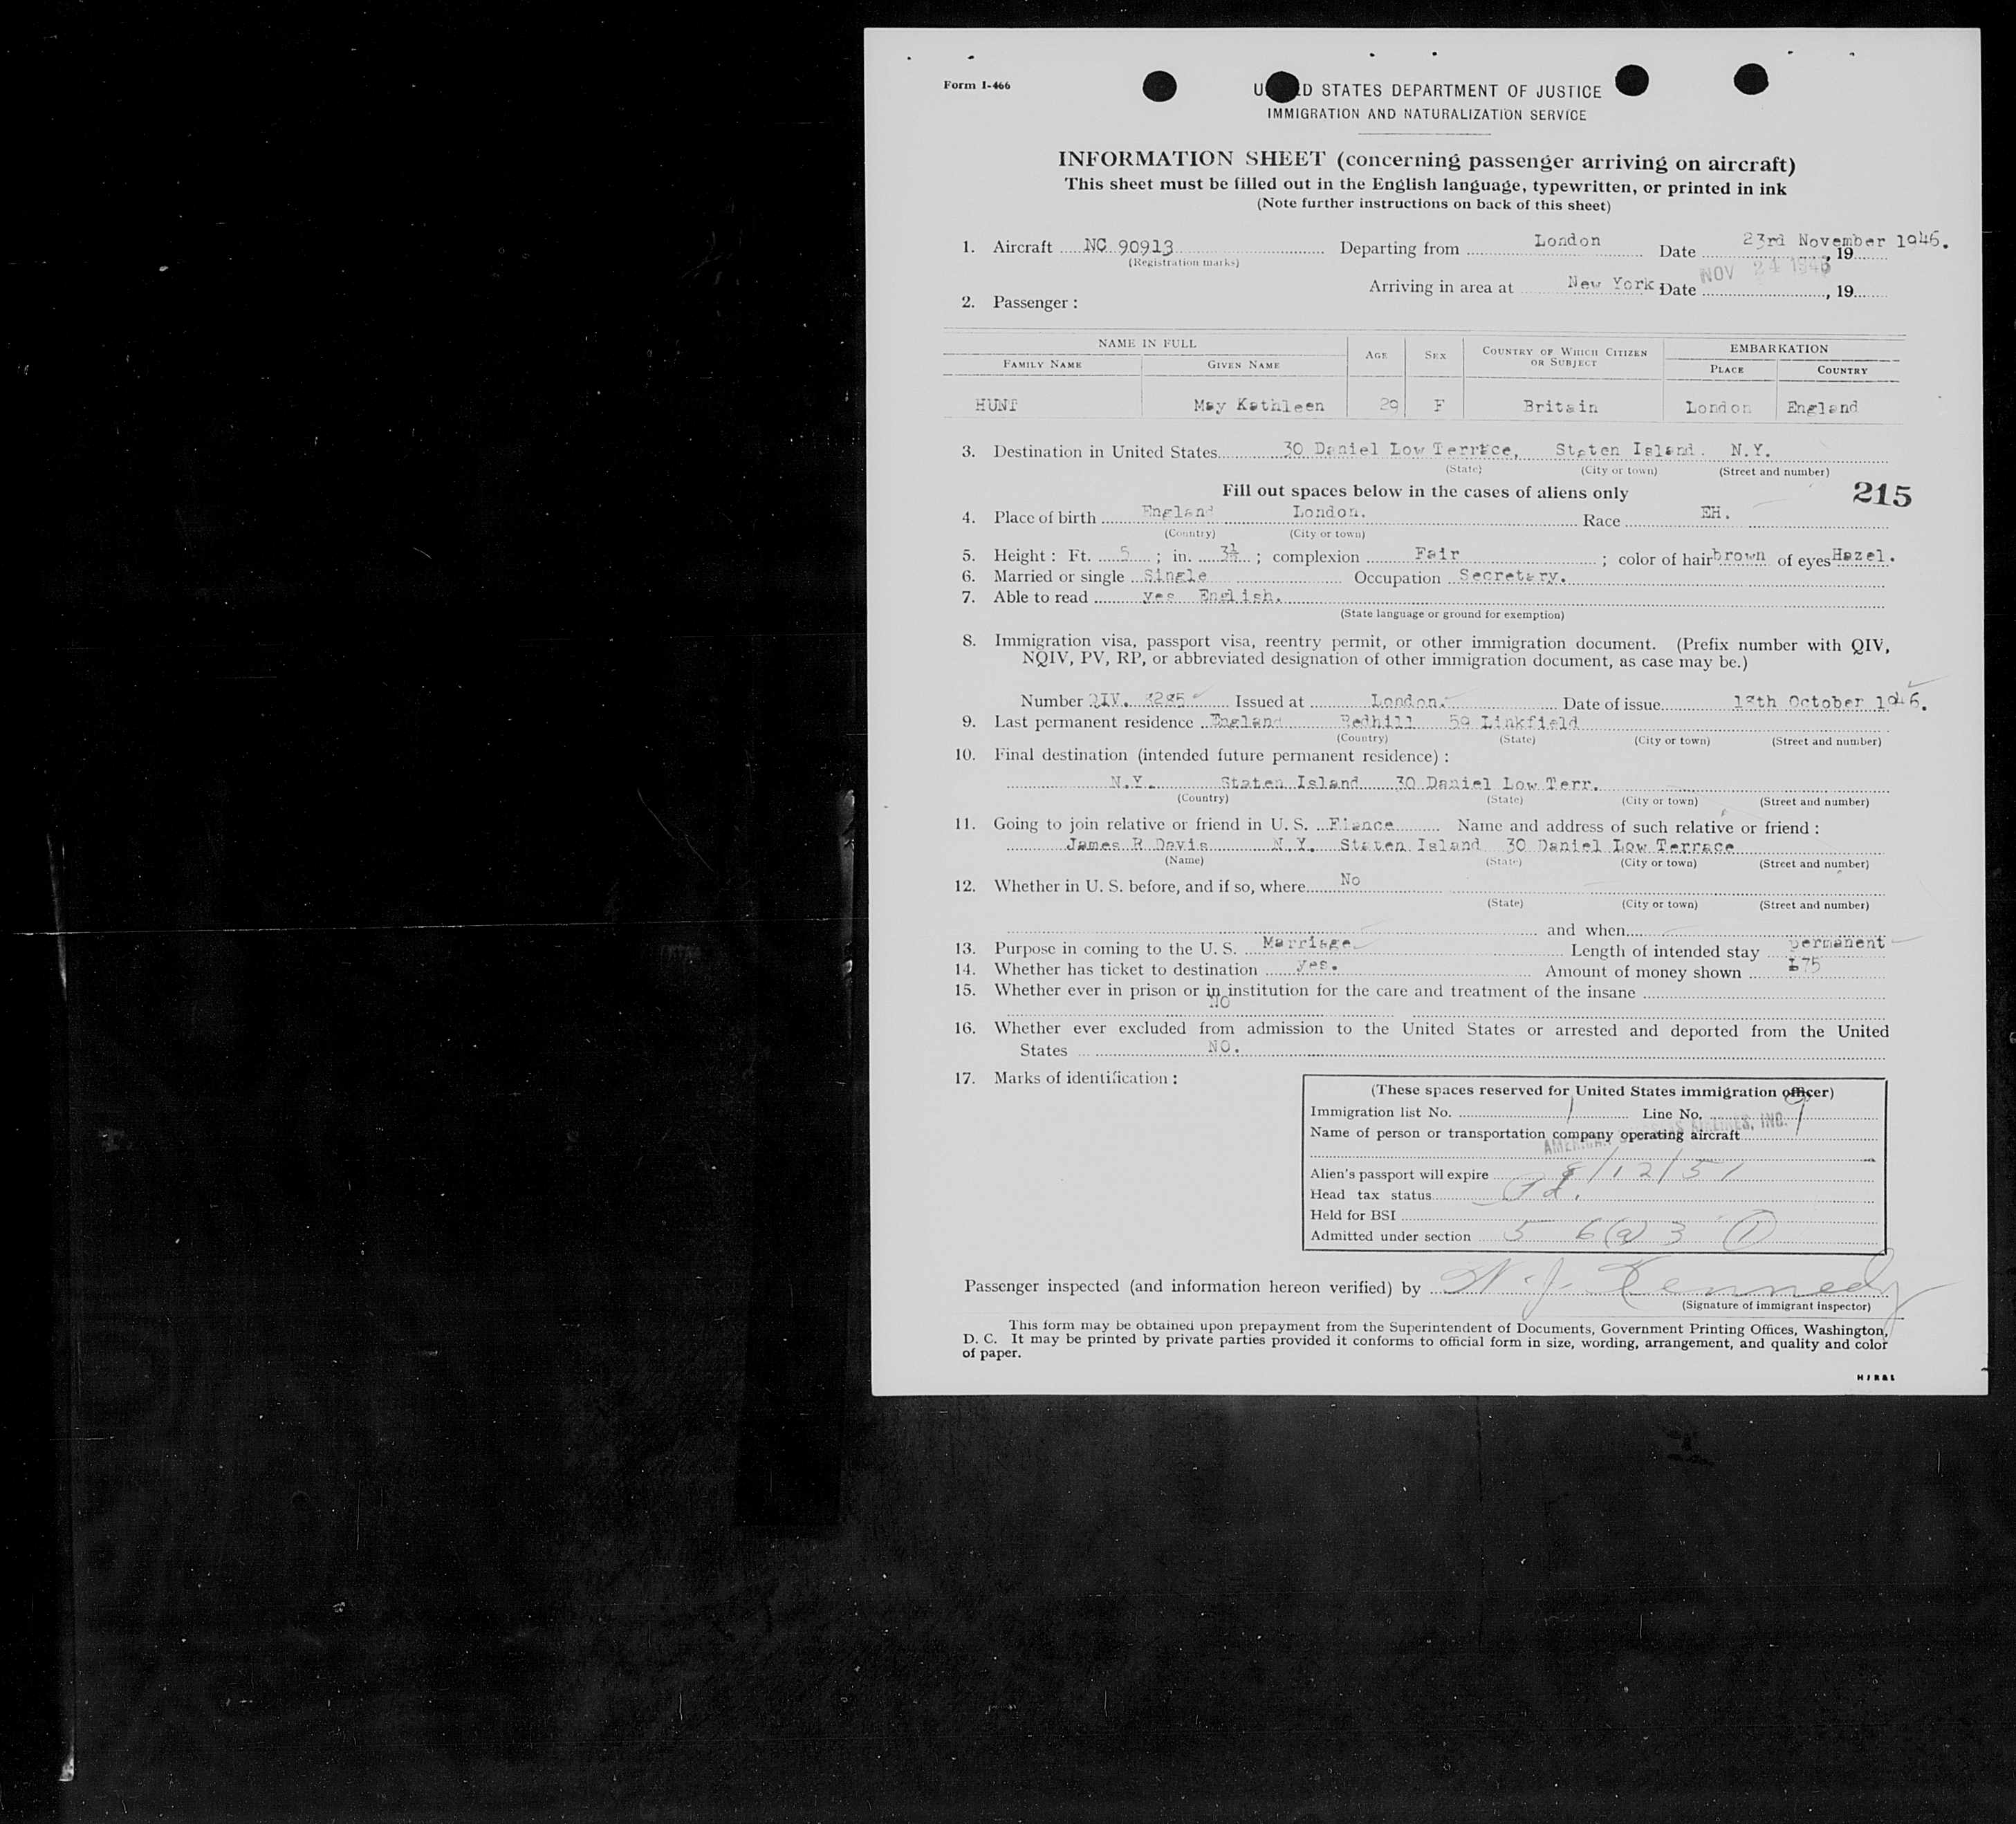 Form I-466
UNITED STATES DEPARTMENT OF JUSTICE
IMMIGRATION AND NATURALIZATION SERVICE
INFORMATION SHEET (concerning passenger arriving on aircraft)
This sheet must be filled out in the English language, typewritten, or printed in ink
(Note further instructions on back of this sheet)
1. Aircraft NC 90913 Departing from London Date 23rd November 1946. , 19
(Registration marks)
Arriving in area at New York Date NOV 24 1946 , 19
2. Passenger :
NAME IN FULL AGE SEX COUNTRY OF WHICH CITIZEN OR SUBJECT EMBARKATION
FAMILY NAME GIVEN NAME PLACE COUNTRY
HUNT May Kathleen 29 F Britain London England
3. Destination in United States 30 Daniel Low Terrace, Staten Island. N.Y.
(State) (City or town) (Street and number)
Fill out spaces below in the cases of aliens only 215
4. Place of birth England London. Race EH.
(Country) (City or town)
5. Height : Ft. 5 ; in. 3½ ; complexion Fair ; color of hair brown of eyes Hazel.
6. Married or single Single Occupation Secretary.
7. Able to read yes English.
(State language or ground for exemption)
8. Immigration visa, passport visa, reentry permit, or other immigration document. (Prefix number with QIV,
NQIV, PV, RP, or abbreviated designation of other immigration document, as case may be.)
Number QIV. Issued at London. Date of issue 18th October 1946.
9. Last permanent residence England Redhill 59 Linkfield
(Country) (State) (City or town) (Street and number)
10. Final destination (intended future permanent residence) :
N.Y. Staten Island 30 Daniel Low Terr.
(Country) (State) (City or town) (Street and number)
11. Going to join relative or friend in U. S. Fiance Name and address of such relative or friend :
James R Davis N.Y. Staten Island 30 Daniel Low Terrace
(Name) (State) (City or town) (Street and number)
12. Whether in U. S. before, and if so, where No
(State) (City or town) (Street and number)
and when
13. Purpose in coming to the U. S. Marriage Length of intended stay permanent
14. Whether has ticket to destination yes. Amount of money shown £75
15. Whether ever in prison or in institution for the care and treatment of the insane
NO
16. Whether ever excluded from admission to the United States or arrested and deported from the United
States NO.
17. Marks of identification :
(These spaces reserved for United States immigration officer)
Immigration list No. 1 Line No. 9
Name of person or transportation company operating aircraft
AMERICAN OVERSEAS AIRLINES, INC.
Alien's passport will expire 8/12/51
Head tax status Pd.
Held for BSI
Admitted under section 5 6(a) 3 (1)
Passenger inspected (and information hereon verified) by W. J. Kennedy
(Signature of immigrant inspector)
This form may be obtained upon prepayment from the Superintendent of Documents, Government Printing Offices, Washington,
D. C. It may be printed by private parties provided it conforms to official form in size, wording, arrangement, and quality and color
of paper.